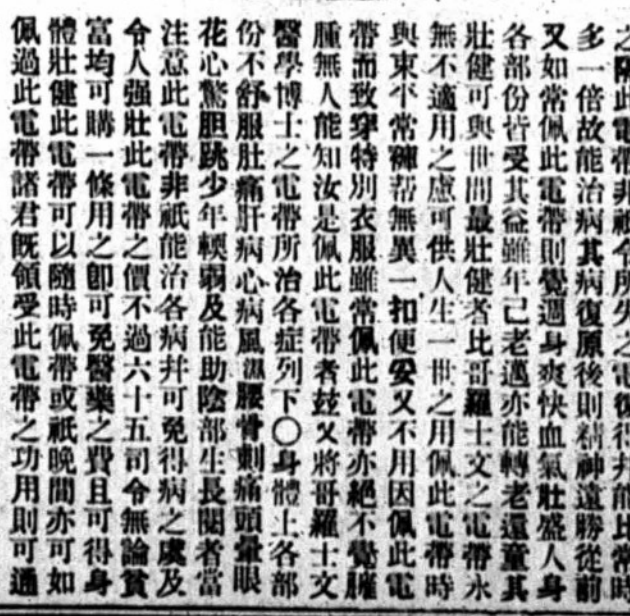 之隔此電帶非祇令所失之電復得并能比常時
多一倍故能治病其病復原後則精神遠勝從前
又如常佩此電帶則覺週身爽快血氣壯盛人身
各部份皆受其益雖年已老邁亦能轉老還童其
壯健可與世間最壯健者比哥羅士文之電帶永
無不適用之慮可供人生一世之用佩此電帶時
與東平常褲帮無異一扣便安又不用因佩此電
帶而致穿特別衣服雖常佩此電帶亦絕不覺臃
腫無人能知汝是佩此電帶者玆又將哥羅士文
醫學博士之電帶所治各症列下〇身體上各部
份不舒服肚痛肝病心病風濕腰骨刺痛頭暈眼
花心驚胆跳少年輭弱及能助陰部生長閱者當
注意此電帶非祇能治各病幷可免得病之虞及
令人强壯此電帶之價不過六十五司令無論貧
富均可購一條用之卽可免醫藥之費且可得身
體壯健此電帶可以隨時佩帶或祇晚間亦可如
佩過此電帶諸君旣領受此電帶之功用則可通